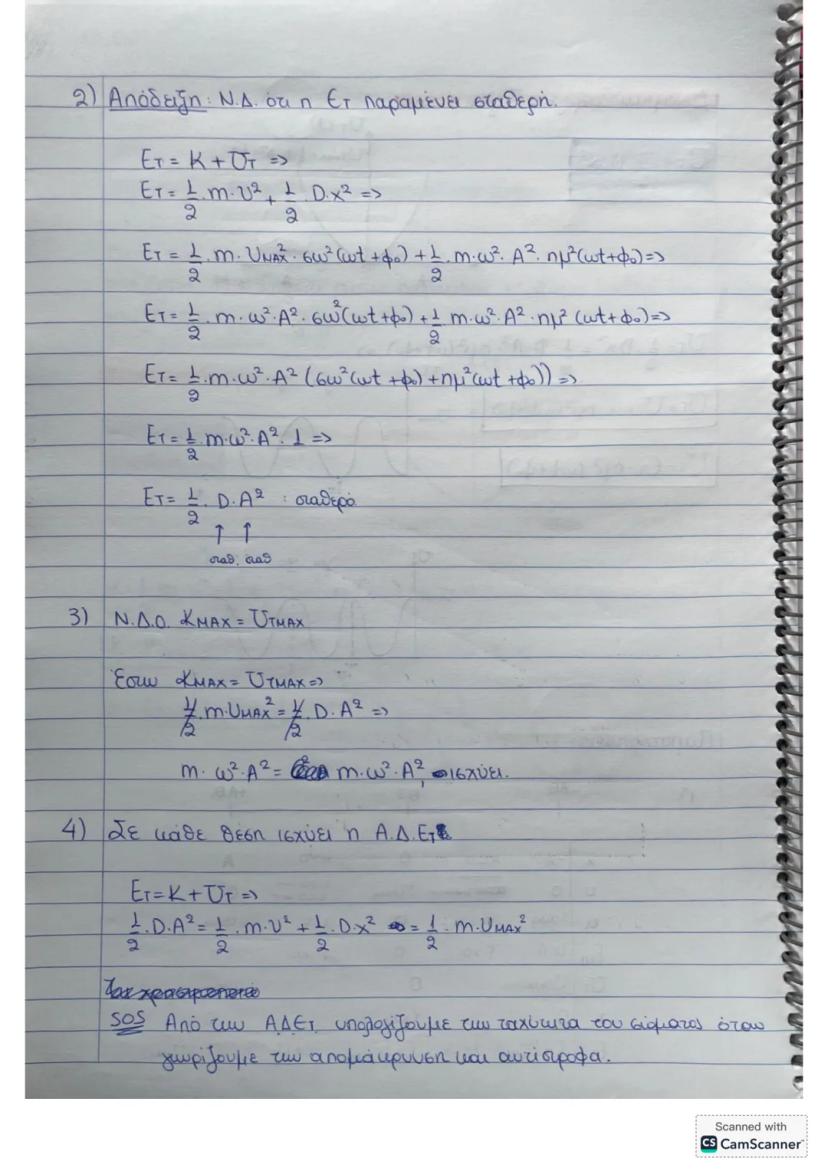 2) Απόδειξη: Ν.Δ. ότι η Ετ παραμένει σταθερή.
Eτ = K + Uτ =>
Eτ = 1/2 · m · υ² + 1/2 · D · x² =>
Eτ = 1/2 · m · υMAX² · συν²(ωt + φ₀) + 1/2 · m · ω² · A² · ημ²(ωt + φ₀) =>
Eτ = 1/2 · m · ω² · A² · συν²(ωt + φ₀) + 1/2 m · ω² · A² · ημ² (ωt + φ₀) =>
Eτ = 1/2 · m · ω² · A² (συν²(ωt + φ₀) + ημ²(ωt + φ₀)) =>
Eτ = 1/2 m · ω² · A² · 1 =>
Eτ = 1/2 · D · A² : σταθερό
↑ ↑
σταθ. σταθ
3) Ν.Δ.Ο. KMAX = UτMAX
Έστω KMAX = UτMAX =>
1/2 · m · υMAX² = 1/2 · D · A² =>
m · ω² · A² = m · ω² · A², ισχύει.
4) Σε κάθε θέση ισχύει η Α.Δ.Ετ
Eτ = K + Uτ =>
1/2 · D · A² = 1/2 · m · υ² + 1/2 · D · x² = 1/2 · m · υMAX²
SOS Από την ΑΔΕτ υπολογίζουμε την ταχύτητα του σώματος όταν
γνωρίζουμε την απομάκρυνση και αντίστροφα.
Scanned with
CS CamScanner